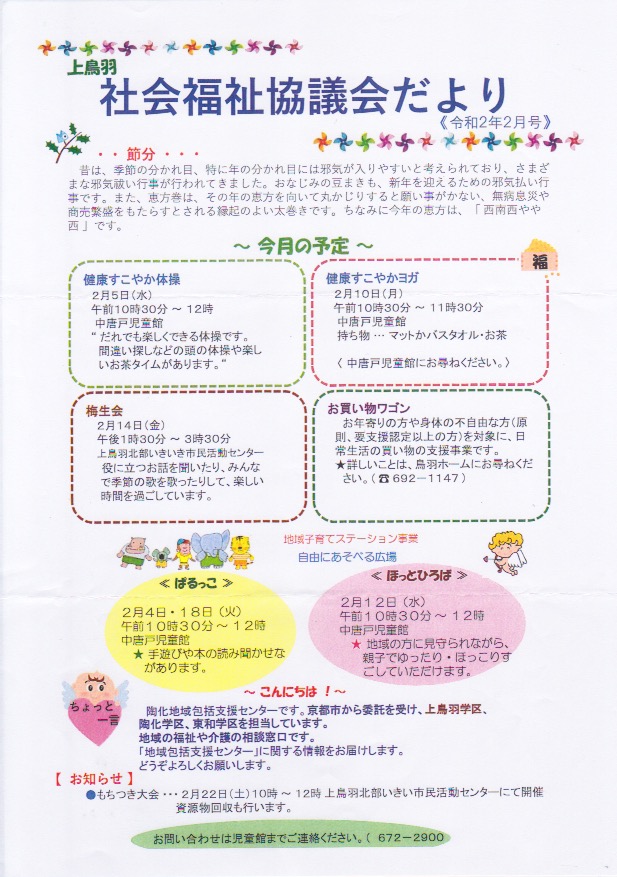 上鳥羽
社会福祉協議会だより
《令和2年2月号》
・・節分・・・
昔は、季節の分かれ目、特に年の分かれ目には邪気が入りやすいと考えられており、さまざ
まな邪気祓い行事が行われてきました。おなじみの豆まきも、新年を迎えるための邪気払い行
事です。また、恵方巻は、その年の恵方を向いて丸かじりすると願い事がかない、無病息災や
商売繁盛をもたらすとされる縁起のよい太巻きです。ちなみに今年の恵方は、「西南西やや
西」です。
～ 今月の予定 ～
福
健康すこやか体操
2月5日(水)
午前10時30分 ～ 12時
中唐戸児童館
“だれでも楽しくできる体操です。
間違い探しなどの頭の体操や楽し
いお茶タイムがあります。“
健康すこやかヨガ
2月10日(月)
午前10時30分 ～ 11時30分
中唐戸児童館
持ち物 … マットかバスタオル・お茶
〈 中唐戸児童館にお尋ねください。〉
梅生会
2月14日(金)
午後1時30分 ～ 3時30分
上鳥羽北部いきいき市民活動センター
役に立つお話を聞いたり、みんな
で季節の歌を歌ったりして、楽しい
時間を過ごしています。
お買い物ワゴン
お年寄りの方や身体の不自由な方(原
則、要支援認定以上の方)を対象に、日
常生活の買い物の支援事業です。
★詳しいことは、鳥羽ホームにお尋ねくだ
さい。(☎692-1147)
地域子育てステーション事業
自由にあそべる広場
≪ ぱるっこ ≫
2月4日・18日(火)
午前10時30分～12時
中唐戸児童館
★ 手遊びや本の読み聞かせな
があります。
≪ ほっとひろば ≫
2月12日(水)
午前10時30分～12時
中唐戸児童館
★ 地域の方に見守られながら、
親子でゆったり・ほっこりす
ごしていただけます。
ちょっと
一言
～ こんにちは ！～
陶化地域包括支援センターです。京都市から委託を受け、上鳥羽学区、
陶化学区、東和学区を担当しています。
地域の福祉や介護の相談窓口です。
「地域包括支援センター」に関する情報をお届けします。
どうぞよろしくお願いします。
【 お知らせ 】
●もちつき大会 ・・・ 2月22日(土)10時 ～ 12時 上鳥羽北部いきい市民活動センターにて開催
資源物回収も行います。
お問い合わせは児童館までご連絡ください。( 672-2900